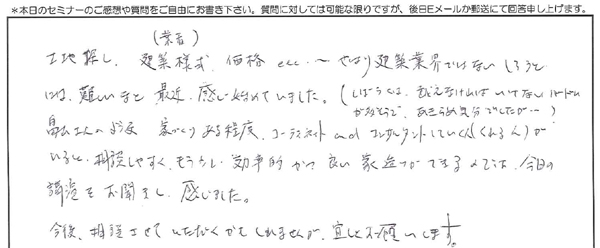 *本日のセミナーのご感想や質問をご自由にお書き下さい。質問に対しては可能な限りですが、後日Eメールか郵送にて回答申し上げます。
(業者)
土地探し、建築様式、価格 etc.… やはり建築業界ではない しろうと
には、難しいなと 最近、感じ始めていました。(しばらくは、むえなければ いけない ハードル
があるようで、あきらめ気分でしたが…)
さんのような 家づくり ある程度、コーディネート and コンサルタントしていく人(くれる人)が
いると、相談しやすく、もう少し 効率的 かつ 良い 家造りができる 今日の
講演をお聞きし、感じました。
今後、相談させていただくかもしれませんが、宜しくお願いします。